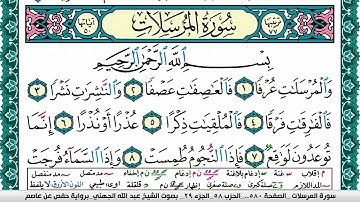 ترتيبها ٧٧
سورة المرسلات
آياتها ٥٠
بِسْمِ اللَّهِ الرَّحْمَٰنِ الرَّحِيمِ
وَالْمُرْسَلَاتِ عُرْفًا ١ فَالْعَاصِفَاتِ عَصْفًا ٢ وَالنَّاشِرَاتِ نَشْرًا ٣
فَالْفَارِقَاتِ فَرْقًا ٤ فَالْمُلْقِيَاتِ ذِكْرًا ٥ عُذْرًا أَوْ نُذْرًا ٦ إِنَّمَا
تُوعَدُونَ لَوَاقِعٌ ٧ فَإِذَا النُّجُومُ طُمِسَتْ ٨ وَإِذَا السَّمَاءُ فُرِجَتْ
سورة المرسلات .. الصفحة ٥٨٠ .. الحزب ٥٨ .. الجزء ٢٩ .. بصوت الشيخ عبد الله الجهني .. برواية حفص عن عاصم